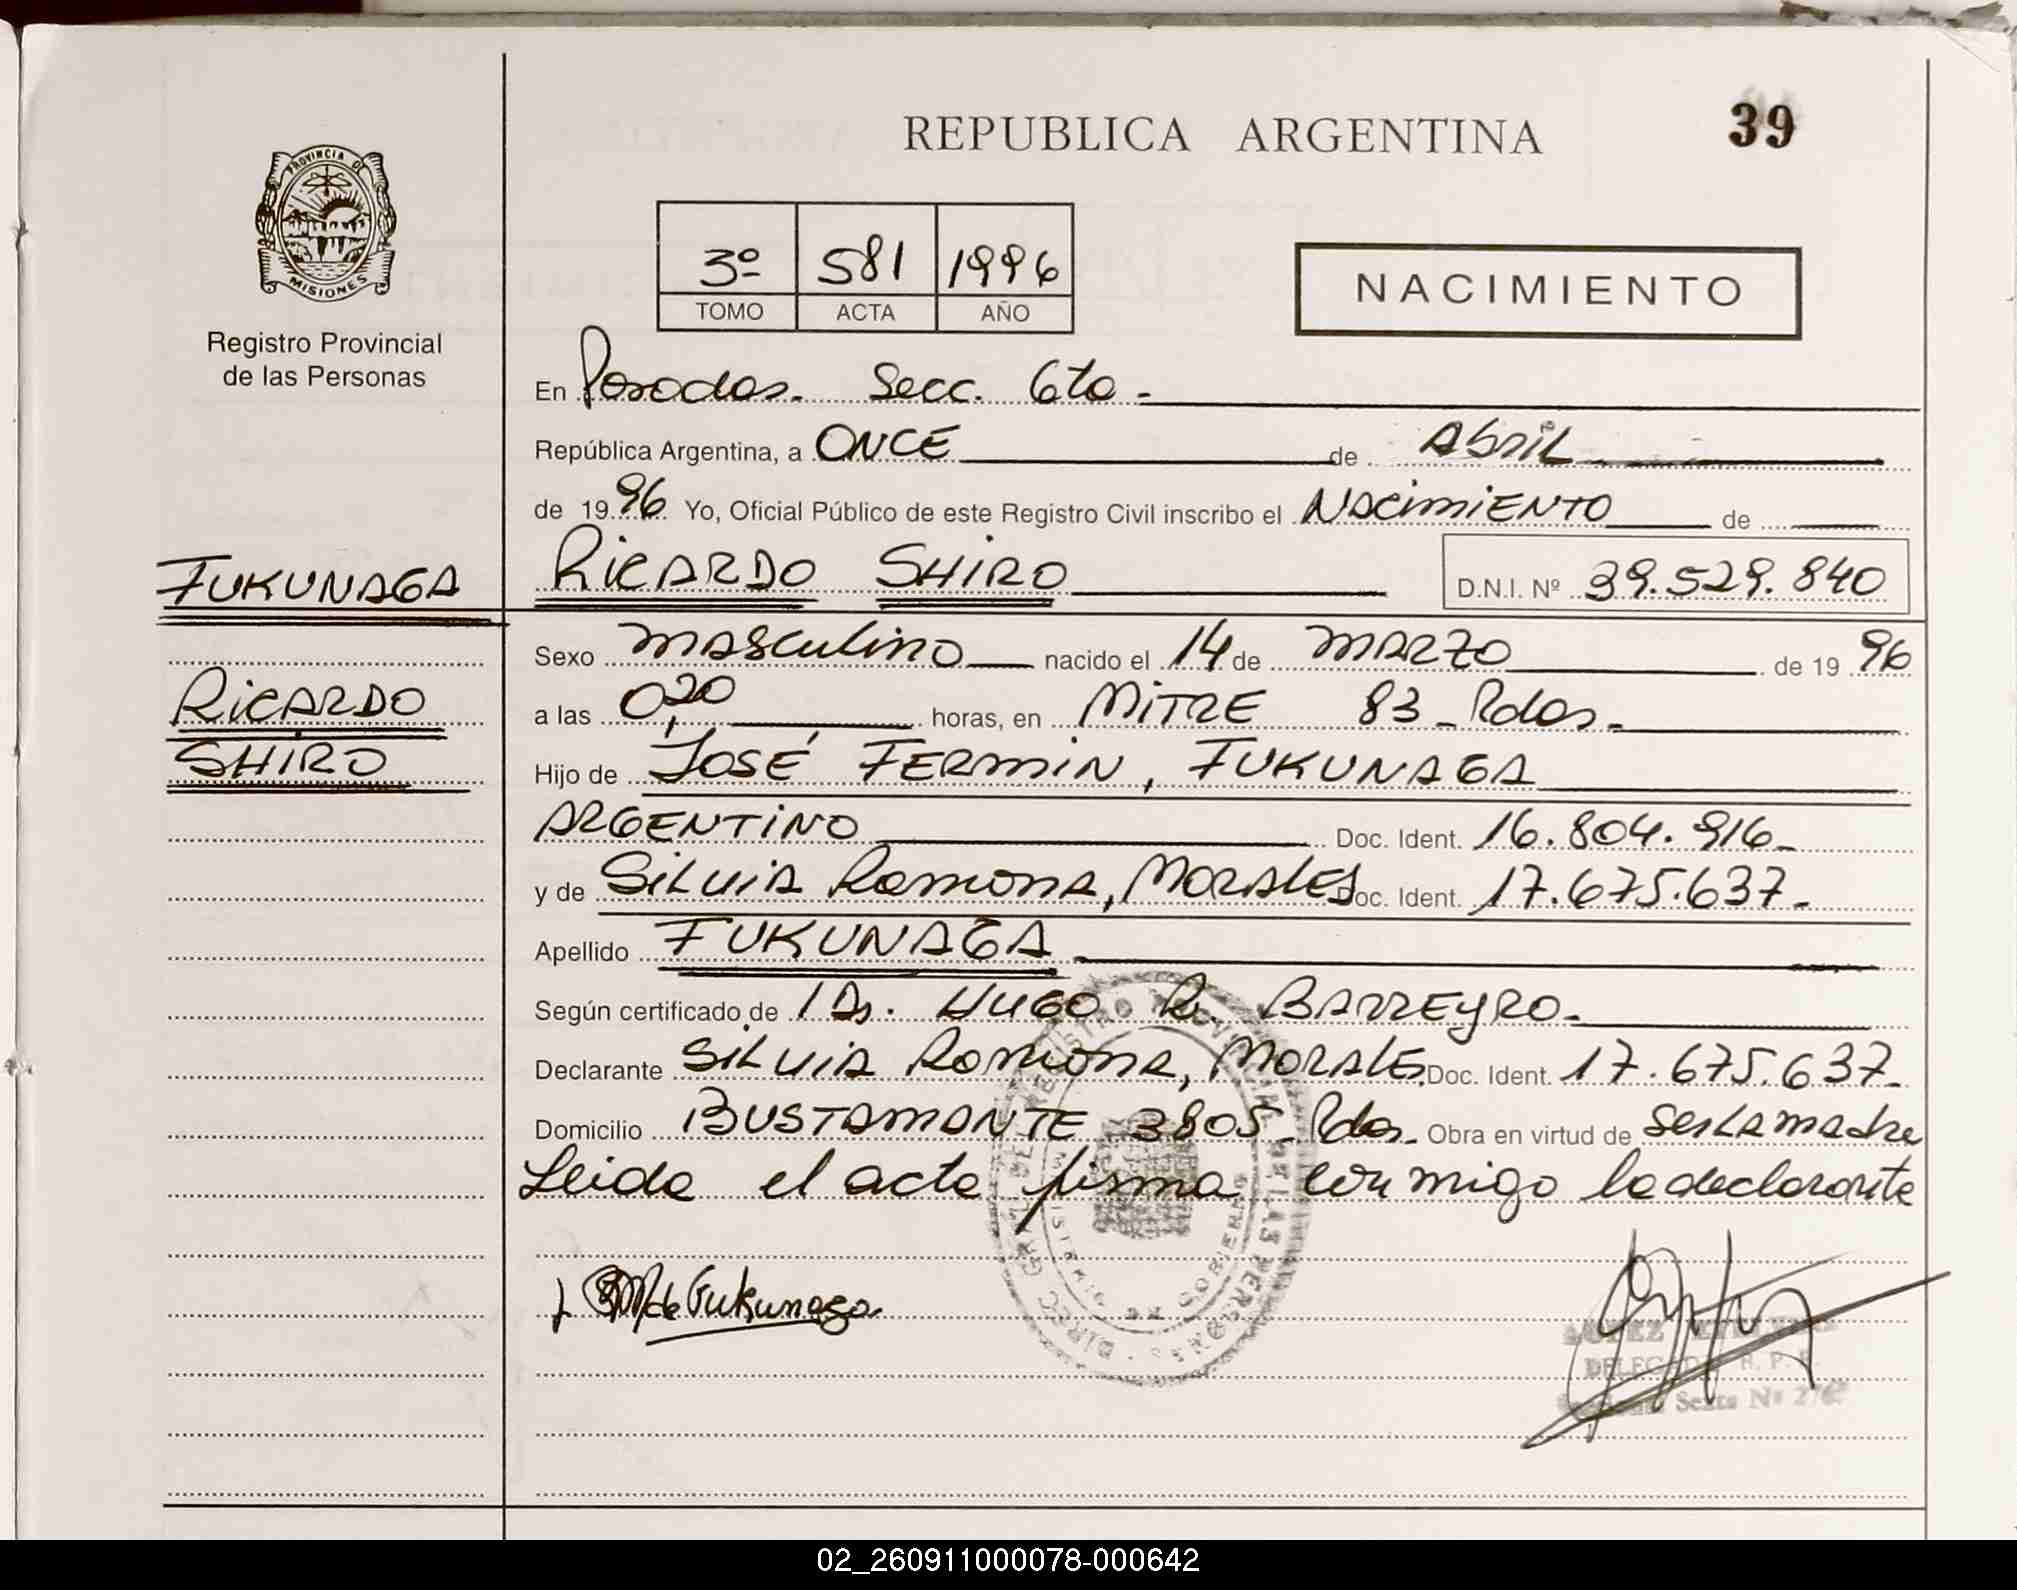 REPUBLICA ARGENTINA
39
PROVINCIA DE
MISIONES
Registro Provincial
de las Personas
3º 581 1996
TOMO ACTA AÑO
NACIMIENTO
En Posadas. Secc. 6ta -
República Argentina, a ONCE de Abril
de 1996 Yo, Oficial Público de este Registro Civil inscribo el NACIMIENTO de
FUKUNAGA
RICARDO SHIRO
D.N.I. Nº 39.529.840
Sexo masculino nacido el 14 de MARZO de 1996
RICARDO
SHIRO
a las 0,20 horas, en MITRE 83 - Pdas.
Hijo de JOSÉ FERMÍN, FUKUNAGA
ARGENTINO Doc. Ident. 16.804.916-
y de SILVIA Ramona, MORALES Doc. Ident. 17.675.637-
Apellido FUKUNAGA
Según certificado de Dr. HUGO R. BARREYRO-
Declarante SILVIA Ramona, MORALES Doc. Ident. 17.675.637-
Domicilio BUSTAMANTE 3805 - Pdas. Obra en virtud de ser la madre
Leida el acta firma conmigo la declarante
de Fukunaga
DIREC. GRAL. DEL REGISTRO PROVINCIAL DE LAS PERSONAS
MISIONES
DE GOBIERNO
LOPEZ
DELEGADA R. P. P.
Sexta Nº
02_260911000078-000642